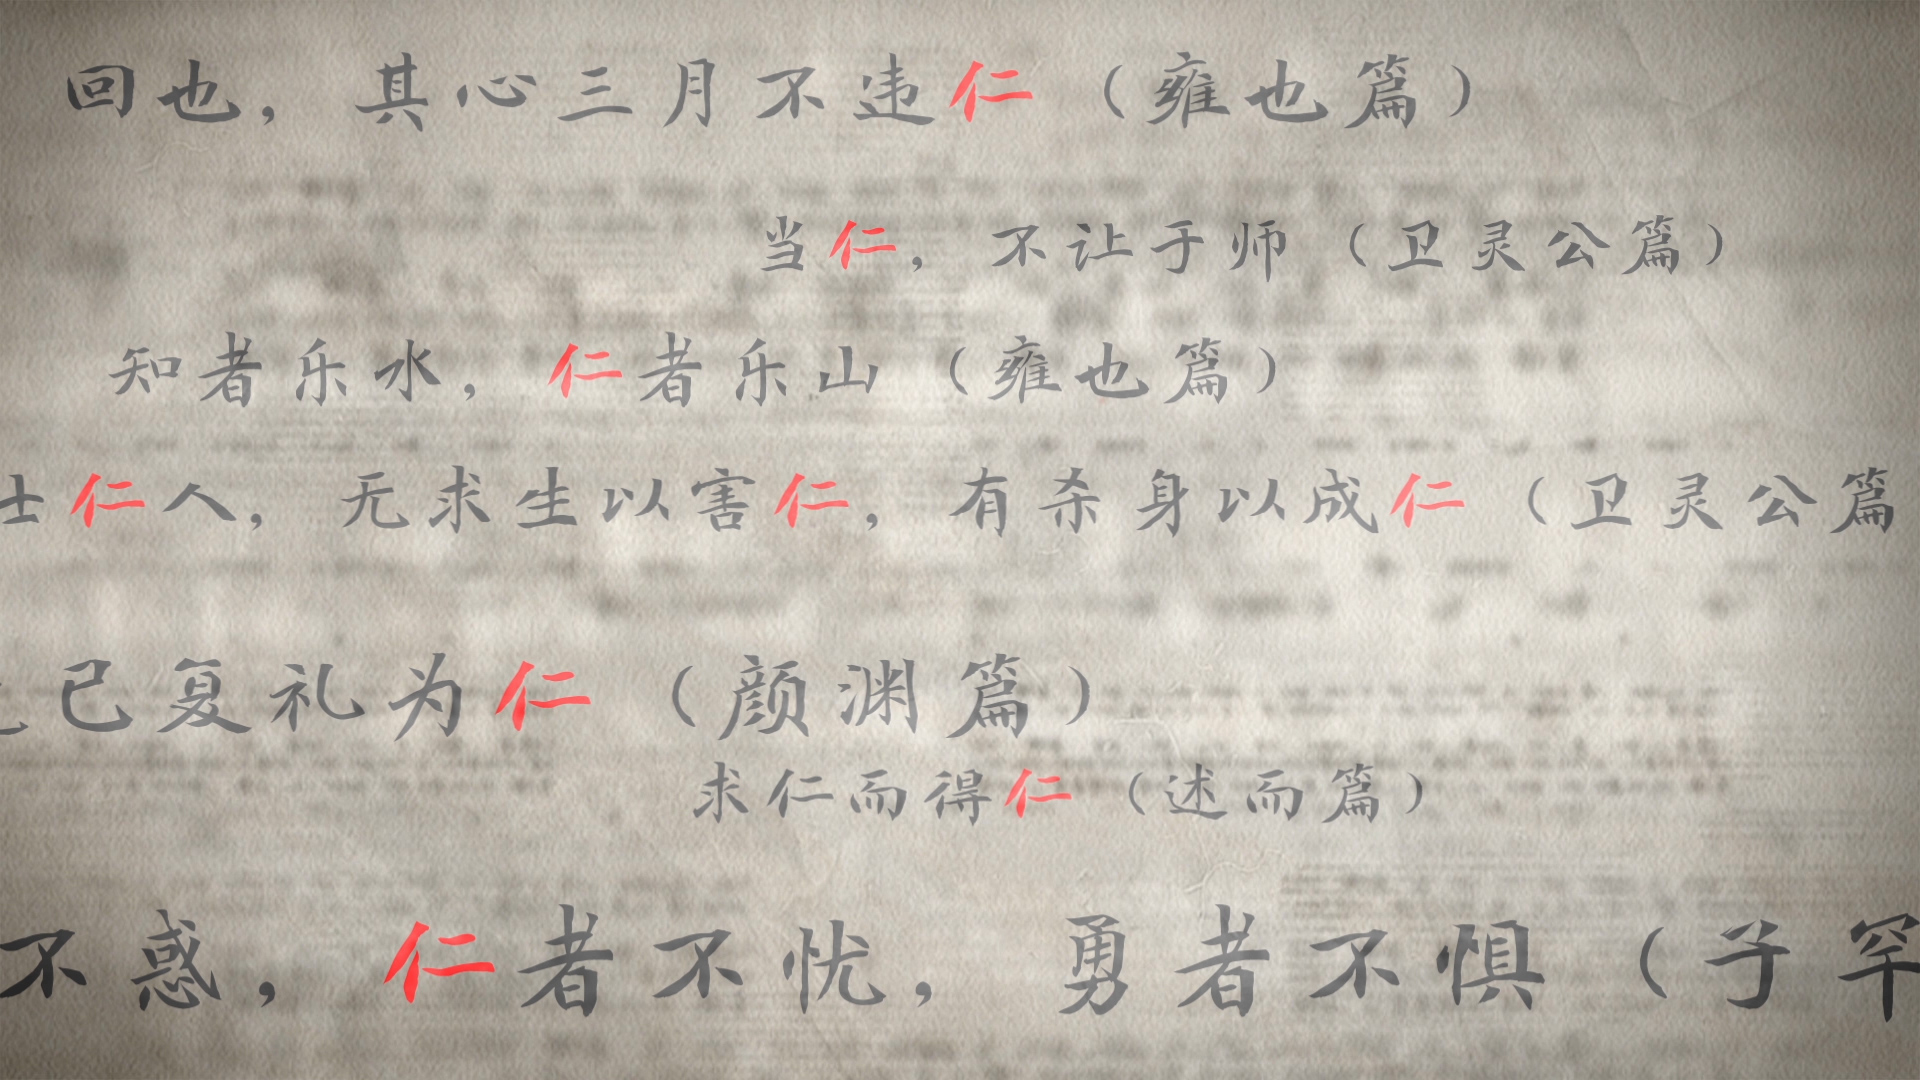 回也，其心三月不违仁（雍也篇）
当仁，不让于师（卫灵公篇）
知者乐水，仁者乐山（雍也篇）
士仁人，无求生以害仁，有杀身以成仁（卫灵公篇
己复礼为仁（颜渊篇）
求仁而得仁（述而篇）
不惑，仁者不忧，勇者不惧（子罕